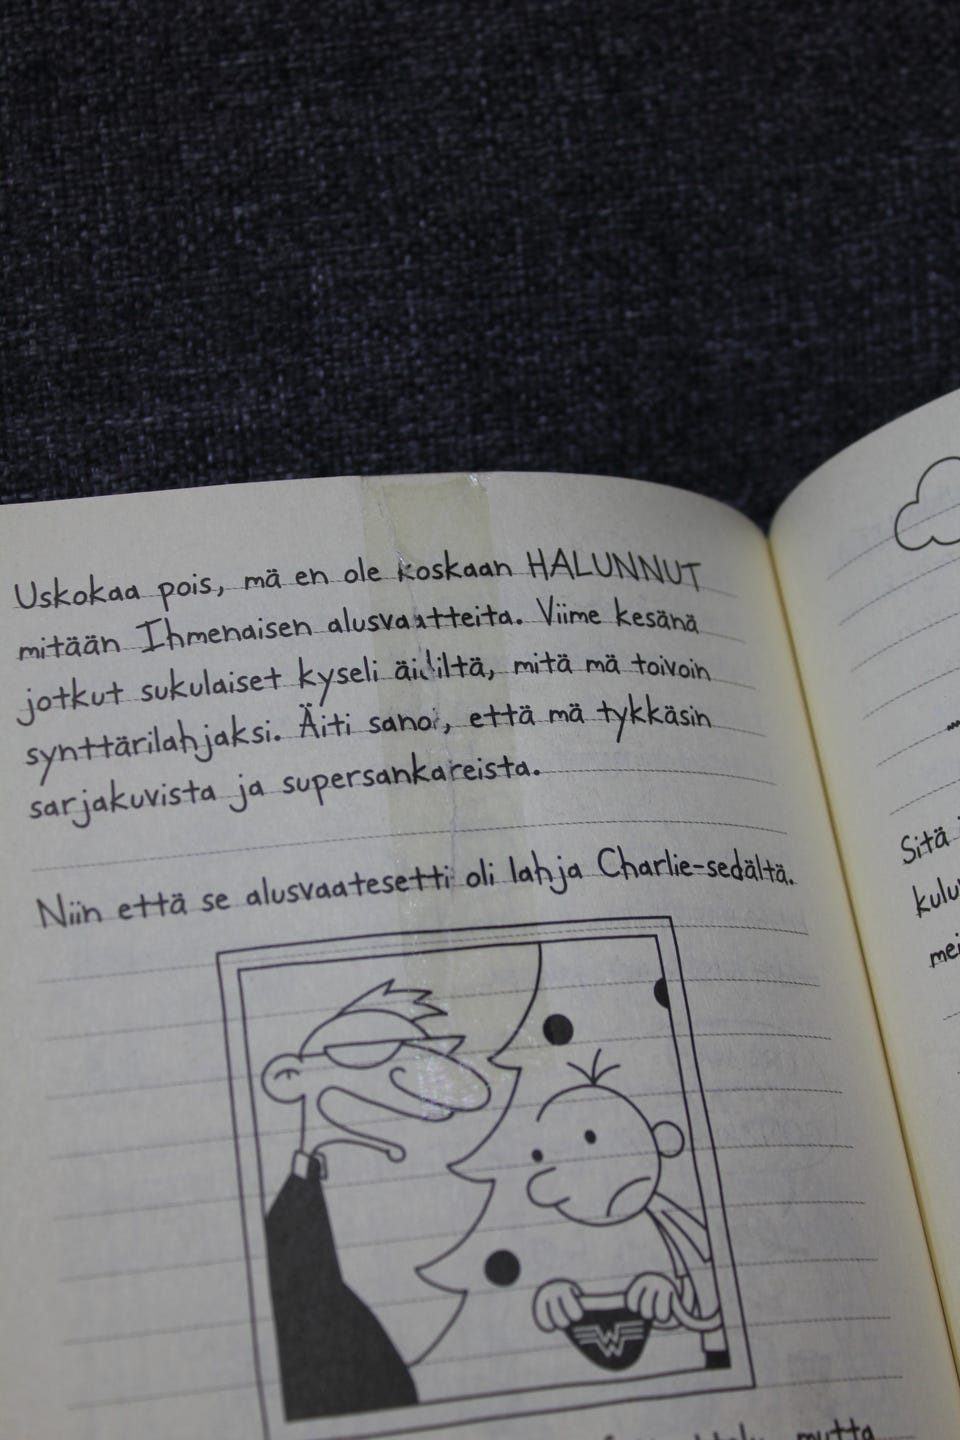 Uskokaa pois, mä en ole koskaan HALUNNUT
mitään Ihmenaisen alusvaatteita. Viime kesänä
jotkut sukulaiset kyseli äidiltä, mitä mä toivoin
synttärilahjaksi. Äiti sanoi, että mä tykkäsin
sarjakuvista ja supersankareista.
Niin että se alusvaatesetti oli lahja Charlie-sedältä.
W
mutta
Sitä